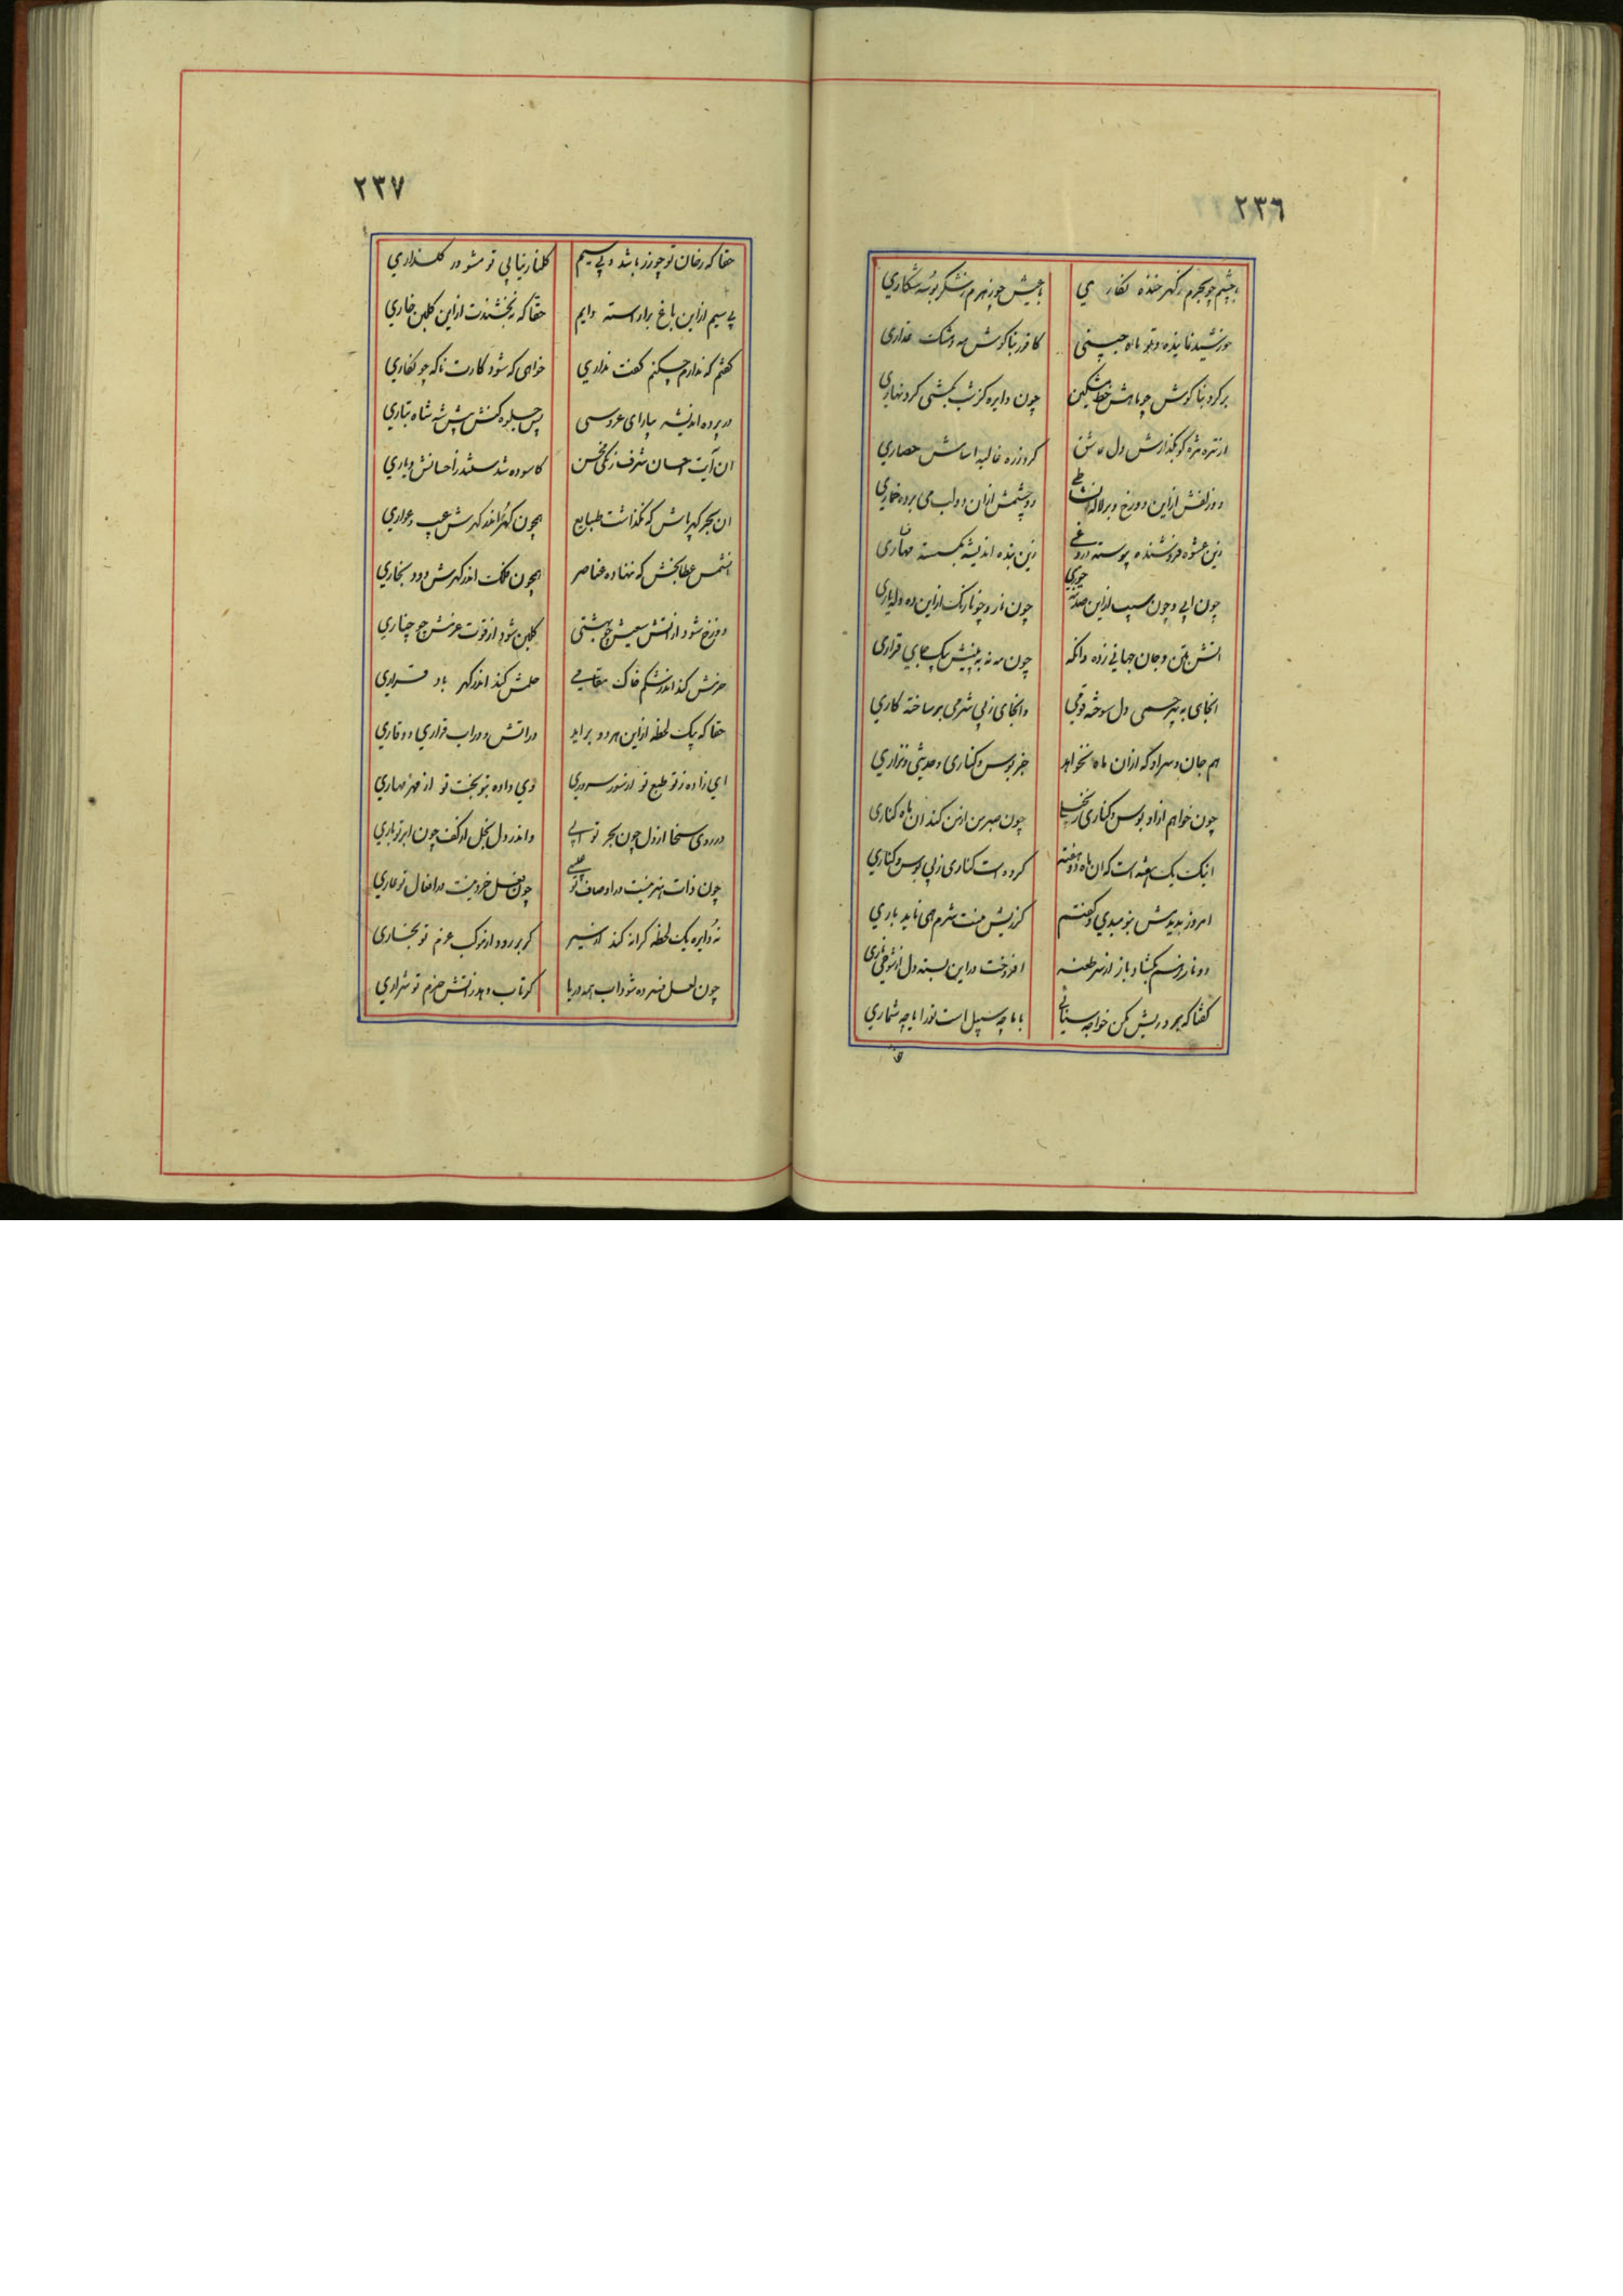 ٢٣٦
با چشم چو بحرم ز گهر خنده نگاری با عیش چو زهرم ز شکر بوسه شکاری
خورشید نماینده و تو ماه جبینی کافور بناگوش مه و مشک عذاری
بر گرد بناگوش چو ماهش خط مشکین چون دایره کز شب بکشی گرد نهاری
کرد از زره غالیه اساسش حصاری
دو زلفش از این دو رخ و بر لاله نشاطی دو چشمش از ان دو لب می برده خماری
زین عشوه فروشنده پیوسته دروغی زین بنده اندیشه بگسسته مهاری
چون ابی و چون سیب از این چون نار و چو نارنگ از این ده دله یاری
اتش بتن و جان جهانی زده وانکه چون مه نه به بینیش بیک جای قراری
انجای به بیرحمی دل سوخته قومی وانجای ز بی شرمی بر ساخته کاری
هم جان و سر او که از ان ماه نخواهد جز بوس و کناری و حدیثی و نزاری
چون خواهم از او بوس و کناری چون صبر من از من کند ان ماه کناری
اینک یک هفته است که ان ماه دو هفته کرده است کناری ز پی بوس و کناری
امروز بدیدمش بنومیدی و گفتم کز ریش منت شرم همی ناید باری
دو نار ز بسم بگشاد باز از سر طعنه افروخت در این بسته دل از شوخی ناری
گفتا که برو ریش مکن خواجه سنائی با ما چه سبیل است تو را یا چه شماری
٢٣٧
حقا که رخان تو چو زر باشد و بی سیم گلنار نیابی تو مشو در گلذاری
بی سیم از این باغ براراسته دایم حقا که نبخشندت از این گلبن خاری
گفتم که ندارم چکنم گفت نداری خواهی که شود کارت ناگه چو نگاری
در پرده اندیشه بیارای عروسی پس جلوه کنش پیش شه شاه تباری
ان آیت احسان شرف زنگی محسن کاسوده شد سشدر احسانش دیاری
ان بحر گهرپاش که نگذاشت طبایع همچون گهر اندر گهرش عیب و عواری
انشمس عطابخش که ننهاده عناصر همچون فلک اندر گهرش دود بخاری
دوزخ شود از اتش سعیش چو بهشتی گلبن شود از قوت عزمش چو چناری
حزمش کند اندر شکم خاک مقامی حلمش کند اندر گهر باد قراری
حقا که یک لحظه از این هر دو براید در اتش و در اب قراری و وقاری
ای زاده ز تو طبع تو از سور سروری وی داده بتو بخت تو از مهر مهاری
در روی سخا از دل چون بحر تو ابی واندر دل بخل از کف چون ابر تو باری
چون ذات هنر نیست در اوصاف تو عیبی چون فعل خرد نیست در افعال تو عاری
نه دایره یک لحظه کرانه کند از سیر گر بر رود از نوک عزم تو بخاری
چون لعل فسرده شود اب همه دریا گر تاب دهد ز اتش حزم تو شراری